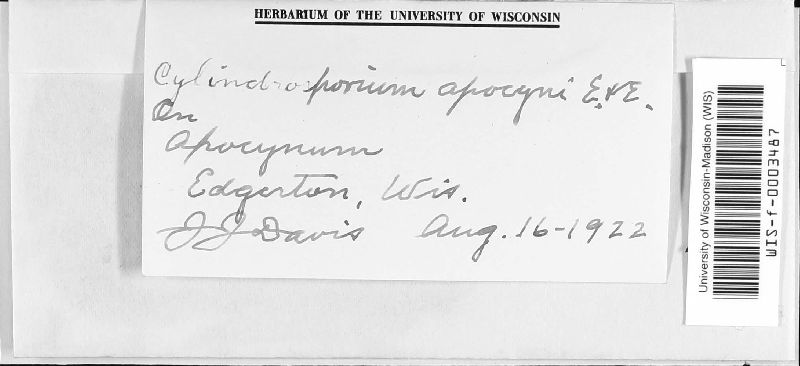 HERBARIUM OF THE UNIVERSITY OF WISCONSIN
Cylindrosporium apocyni E. & E.
On
Apocynum
Edgerton, Wis.
J J Davis Aug. 16-1922
University of Wisconsin-Madison (WIS)
WIS-f-0003487